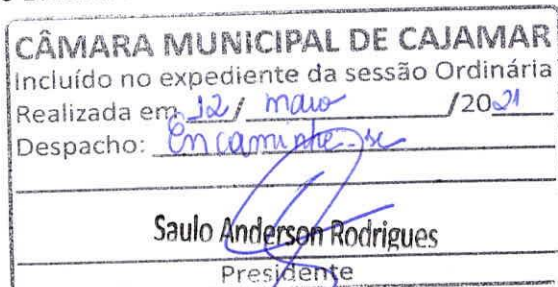 CÂMARA MUNICIPAL DE CAJAMAR
Incluído no expediente da sessão Ordinária
Realizada em 12/ maio /2021
Despacho: Encaminhe-se
Saulo Anderson Rodrigues
Presidente